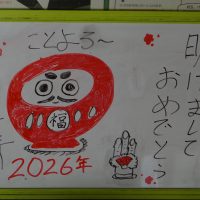 明けまして
おめでとう
ことよろ～
福
2026年